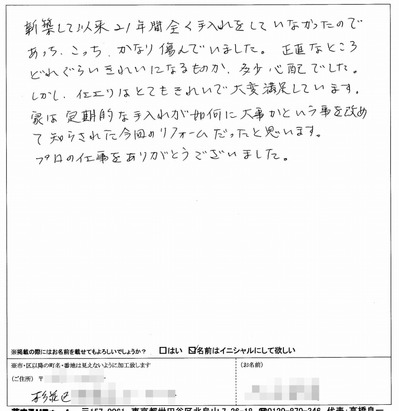 新築して以来21年間全く手入れをしていなかったので
あっち、こっち、かなり傷んでいました。正直なところ
どれぐらいきれいになるものか、多少心配でした。
しかし、仕上りはとてもきれいで大変満足しています。
家は定期的な手入れが如何に大事かという事を改め
て知らされた今回のリフォームだったと思います。
プロの仕事をありがとうございました。
※掲載の際にはお名前を載せてもよろしいでしょうか? □はい ☑名前はイニシャルにして欲しい
※市・区以降の町名・番地は見えないように加工致します
(お名前)
(ご住所) 〒
杉並区
〒157-0061 東京都世田谷区北烏山7-26-18 ☎0120-879-346 代表:高橋良一